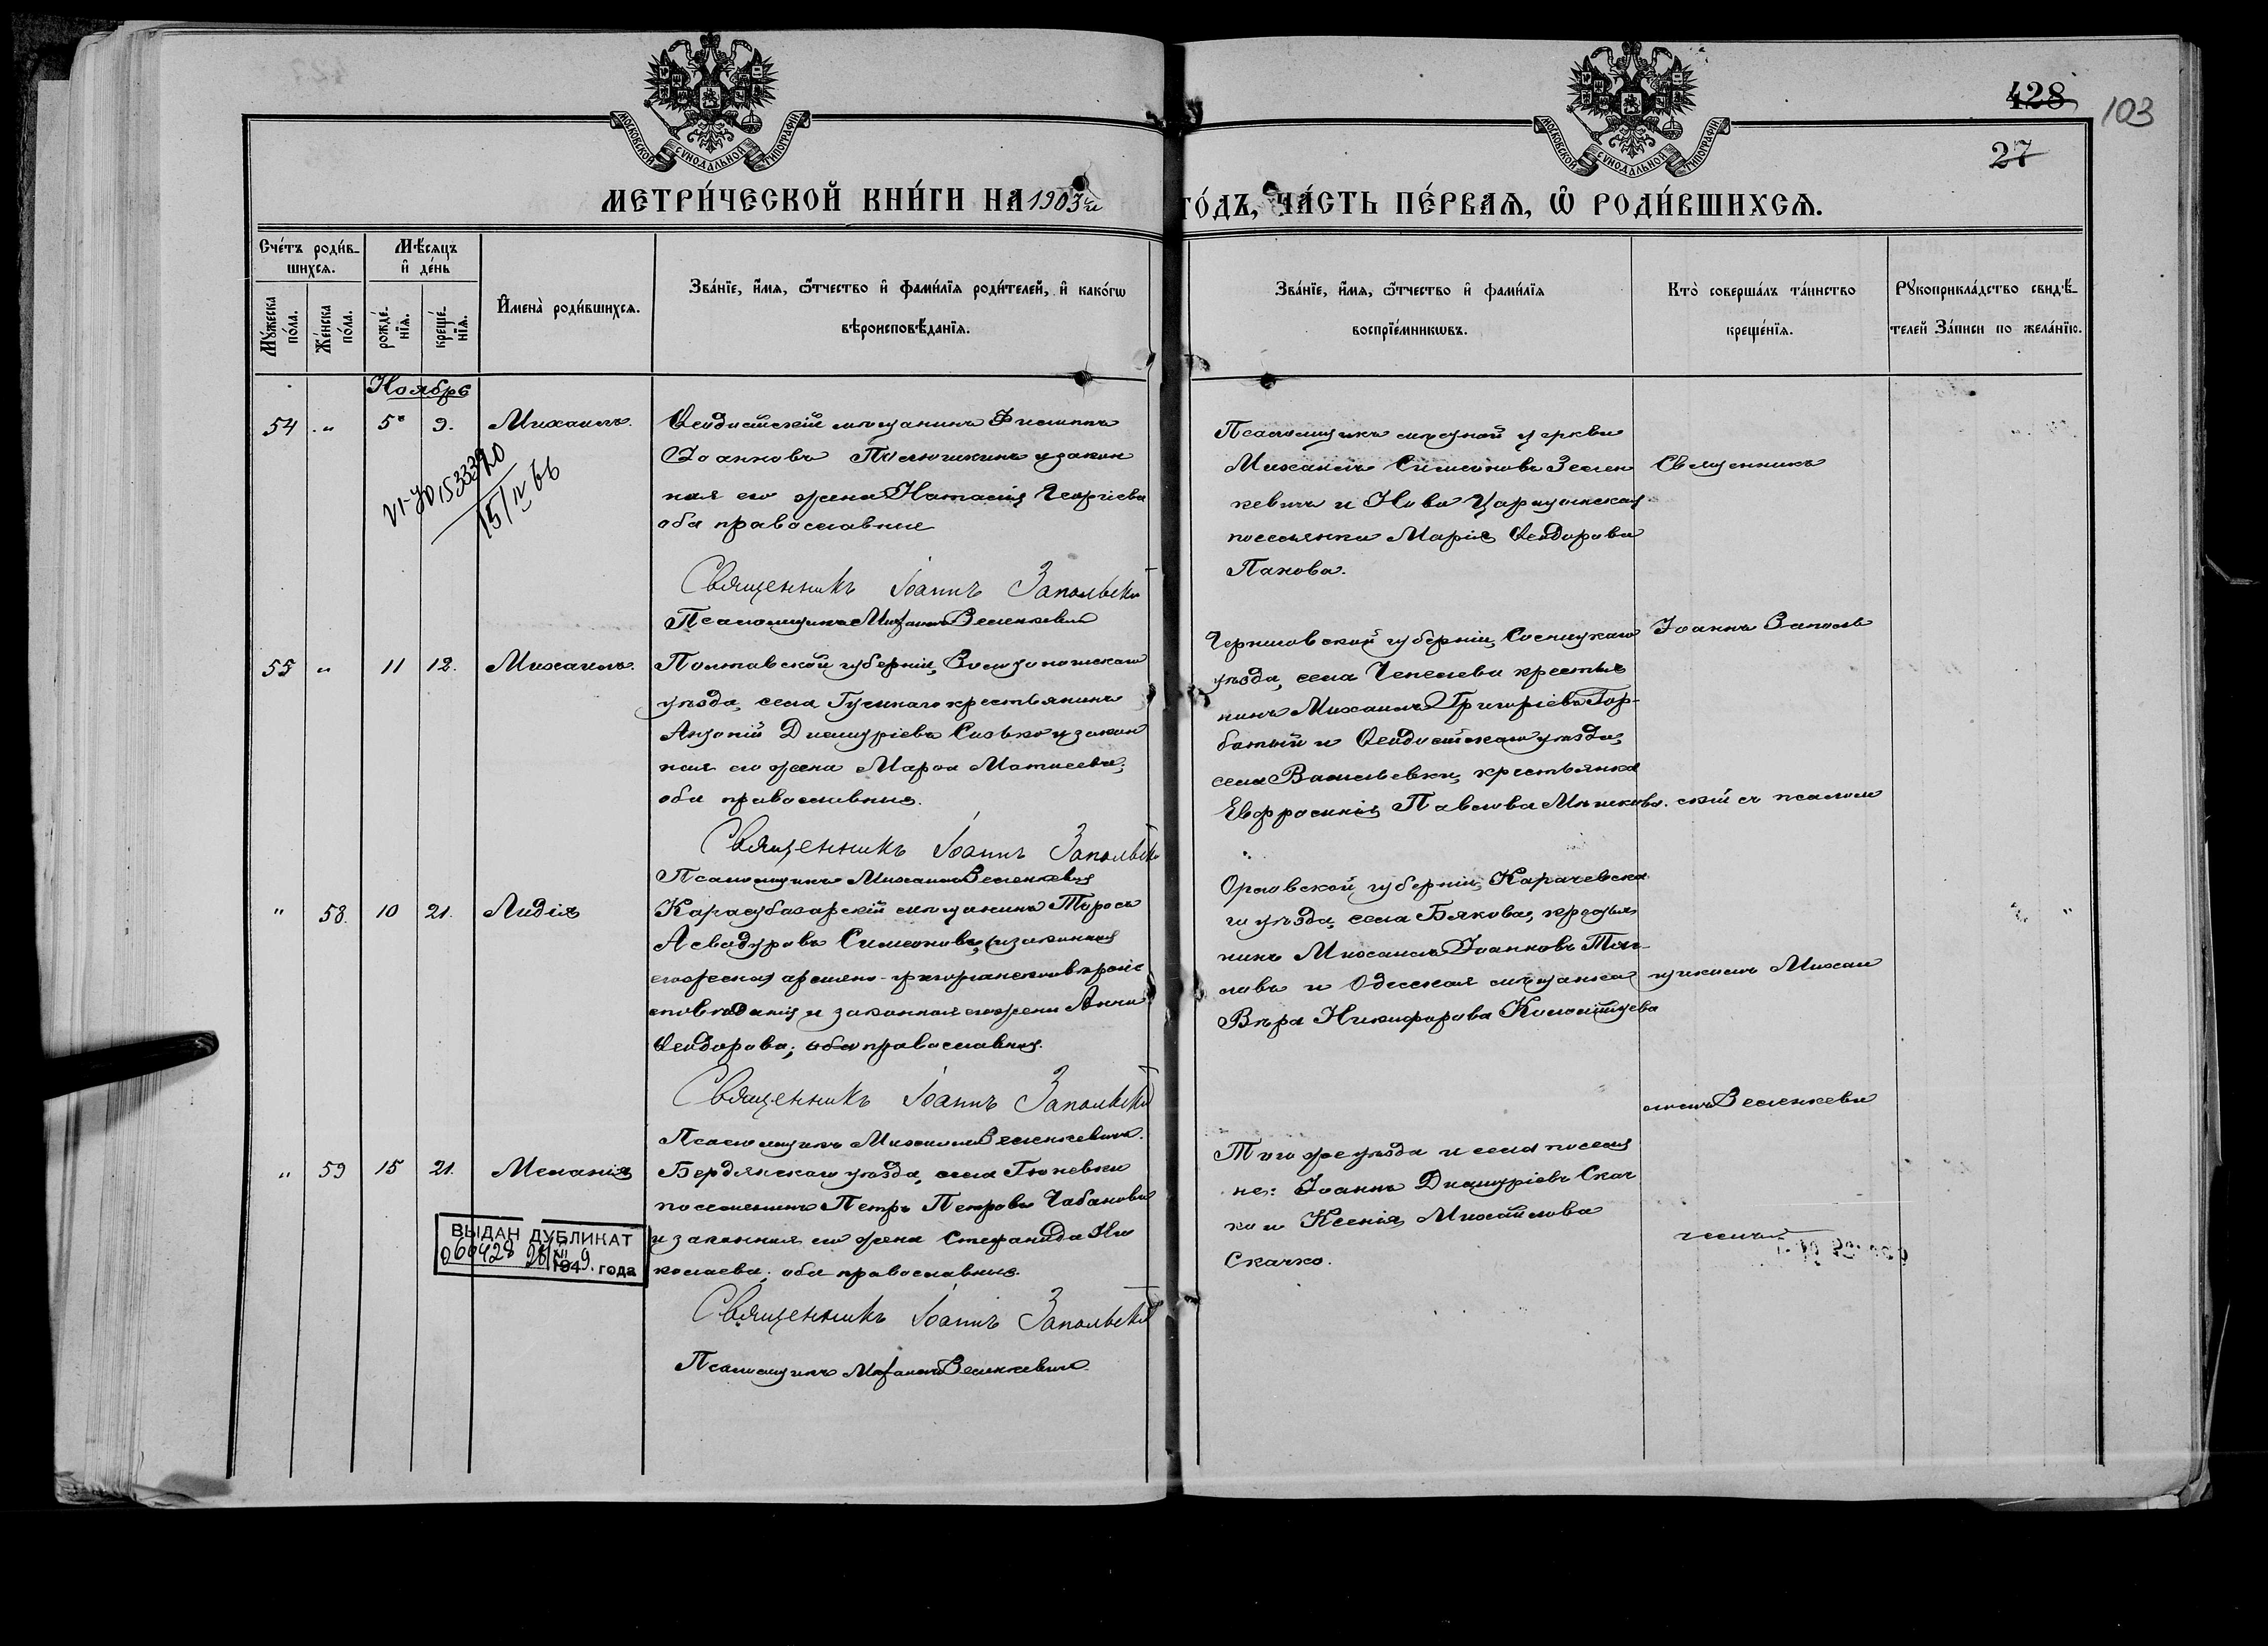 428
103
27
МОСКОВСКОЙ СѴНОДАЛЬНОЙ ТИПОГРАФІИ
МОСКОВСКОЙ СѴНОДАЛЬНОЙ ТИПОГРАФІИ
МЕТРИ́ЧЕСКОЙ КНИ́ГИ НА 1903й ГО́ДЪ, ЧА́СТЬ ПЕ́РВАѦ, Ѡ РОДИ́ВШИХСѦ.
Сче́тъ роди́в-
шихсѧ.
Мꙋ́жеска по́ла.
Же́нска по́ла.
Мѣ́сяцъ
и҆ де́нь
рожде́-
нїѧ.
креще́-
нїѧ.
И҆мена̀ роди́вшихсѧ.
Зва́нїе, и҆́мѧ, ѻ҆́тчество и҆ фами́лїѧ роди́телей, и҆ како́гѡ
вѣроисповѣ́данїѧ.
Зва́нїе, и҆́мѧ, ѻ҆́тчество и҆ фами́лїѧ
воспрїе́мникѡвъ.
Кто̀ соверша́лъ та́инство
креще́нїѧ.
Рꙋкоприкла́дство свидѣ́-
телей за́писи по жела́нїю.
Ноябрь
54 " 5 9. Михаилъ.
Ѳеодосійскій мѣщанинъ Филиппъ
Іоанновъ и закон
ная его жена Наталія Георгіева
оба православные
Священникъ Іоаннъ Запольскій
Псаломщикъ Михаилъ Зеленкевичъ
Псаломщикъ мѣстной церкви
Михаилъ Симеоновъ Зелен
кевичъ и Ново Царицынская
поселянка Марія Ѳеодорова
Панова.
15/IV 66
55 " 11 12. Михаилъ.
Полтавской губерніи, Золотоношскаго
уѣзда, села Гусинаго крестьянинъ
Антоній Димитріевъ и закон
ная его жена Марѳа Матѳеева;
оба православные.
Священникъ Іоаннъ Запольскій
Псаломщикъ Михаилъ Зеленкевичъ
Черниговской губерніи, Сосницкаго
уѣзда, села Чепелева крестья
нинъ Михаилъ Григоріевъ Гор-
батый и Ѳеодосійскаго уѣзда,
села Васильевки, крестьянка
Евфросинія Павлова Мишкова.
" 58. 10 21. Лидія
Карасубазарскій мѣщанинъ Торосъ
Асвадуровъ Симеоновъ,
армяно-григоріанскаго вѣроис
повѣданія и законная его жена Анна
Ѳеодорова; православная.
Священникъ Іоаннъ Запольскій
Псаломщикъ Михаилъ Зеленкевичъ.
Орловской губерніи, Карачевска
го уѣзда, села Бякова, крестья
нинъ Михаилъ Іоанновъ
и Одесская мѣщанка
Вѣра Никифорова
" 59 15 21. Меланія
Бердянскаго уѣзда, села Гюневки
поселянинъ Петръ Петровъ Чабановъ
и законная его жена Стефанида Ни
колаева; оба православные.
Священникъ Іоаннъ Запольскій
Псаломщикъ Михаилъ Зеленкевичъ.
Того же уѣзда и села поселя
не: Іоаннъ Димитріевъ Скач
ко и Ксенія Михайлова
Скачко.
ВЫДАН ДУБЛИКАТ
060428 194 9. года
Священникъ
Іоаннъ Заполь
скій съ псалом
щикомъ Михаи
ломъ Зеленкеви
чемъ